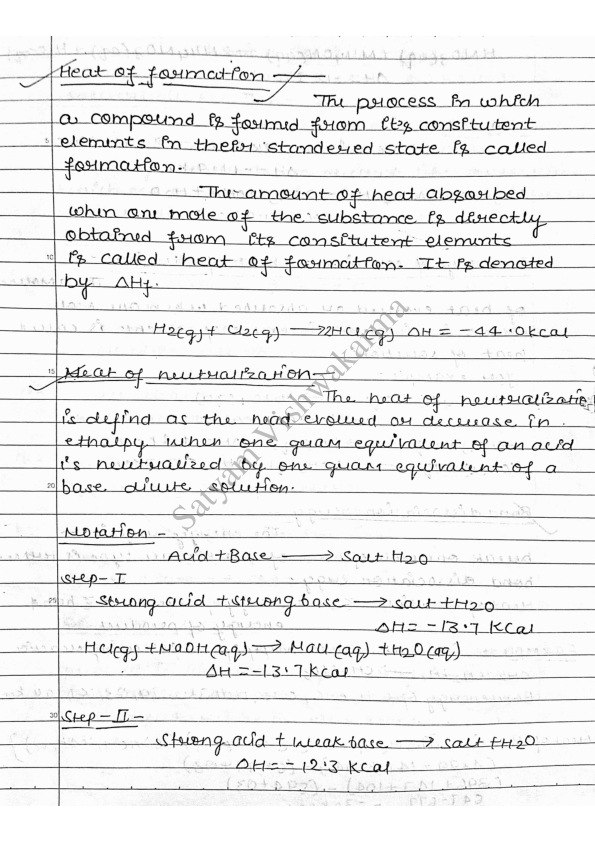 Heat of formation
The process in which
a compound is formed from its consitutent
5 elements in their standered state is called
formation.
The amount of heat absorbed
when one mole of the substance is directly
obtained from its consitutent elements
10 is called heat of formation. It is denoted
by ΔHf.
H2(g) + Cl2(g) ⟶ 2HCl(g) ΔH = -44.0kcal
15 Heat of neutralization
The heat of neutralizatio
is defind as the head evolved or decrease in
ethalpy when one gram equivalent of an acid
is neutralized by one gram equivalent of a
20 base dilute solution.
Notation -
Acid + Base ⟶ Salt H2O
Step-I
25 Strong acid + strong base ⟶ salt + H2O
ΔH = -13.7 KCal
HCl(g) + NaOH(aq) ⟶ NaCl(aq) + H2O(aq)
ΔH = -13.7 kcal
30 Step-II-
Strong acid + weak base ⟶ salt + H2O
ΔH = -12.3 KCal
Satyam Vishwakarma